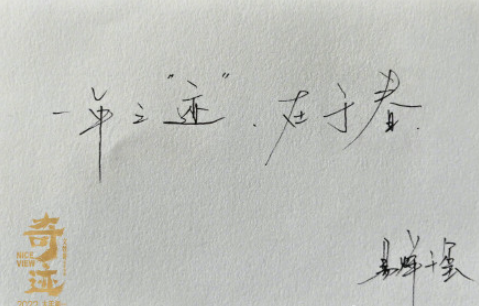 一年之“迹”,在于春.
易烊千玺
奇迹
NICE
VIEW